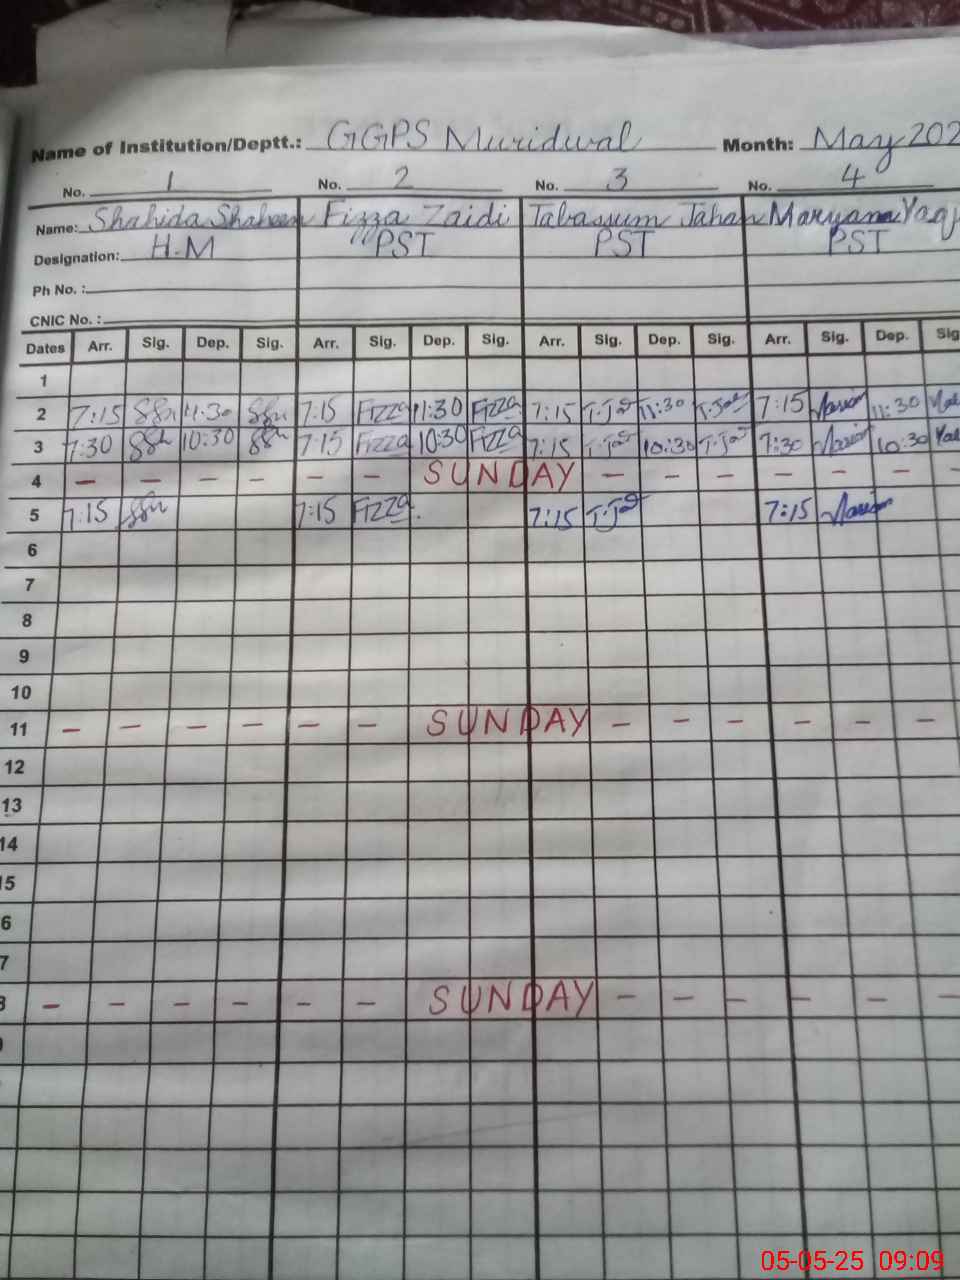 Name of Institution/Deptt.: GGPS Muridwal Month: May 202
No. 1 No. 2 No. 3 No. 4
Name: Shahida Shaheen Fizza Zaidi Tabassum Jahan Maryam Yaq
Designation: H-M PST PST PST
Ph No. :
CNIC No. :
Dates Arr. Sig. Dep. Sig. Arr. Sig. Dep. Sig. Arr. Sig. Dep. Sig. Arr. Sig. Dep. Sig
1
2 7:15 SSn 11:30 SSn 7:15 Fizza 11:30 Fizza 7:15 T.Ja 11:30 T.Ja 7:15 11:30
3 7:30 SSn 10:30 SSn 7:15 Fizza 10:30 Fizza 7:15 T.Ja 10:30 T.Ja 7:30 10:30
4 - - - - - - SUNDAY - - - - - -
5 7:15 SSn 7:15 Fizza. 7:15 T.Ja 7:15
6
7
8
9
10
11 - - - - - - SUNDAY - - - - - -
12
13
14
15
6
7
8 - - - - - - SUNDAY - - - - - -
05-05-25 09:09